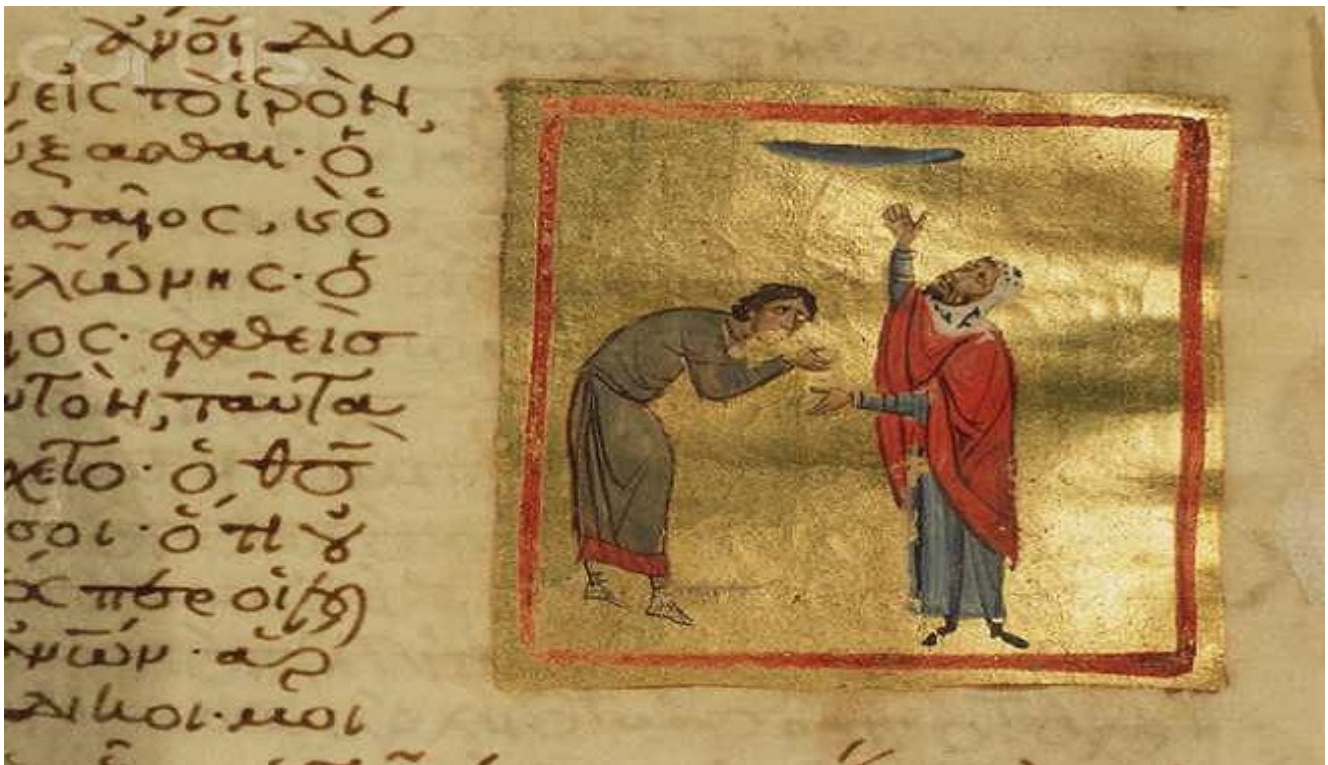 ἄνοι δύο
εἰς τὸ ἱερὸν,
ύξασθαι· ὁ
σαῖος, καὶ ὁ
ελώνης· ὁ
ῖος· σταθεὶσ
υτὸν, ταῦτα
χετο· ὁ θσ̅
σοι· ὅτι οὐ
περ οἱ
ἀνῶν· ἅρ
δικοι· μοι